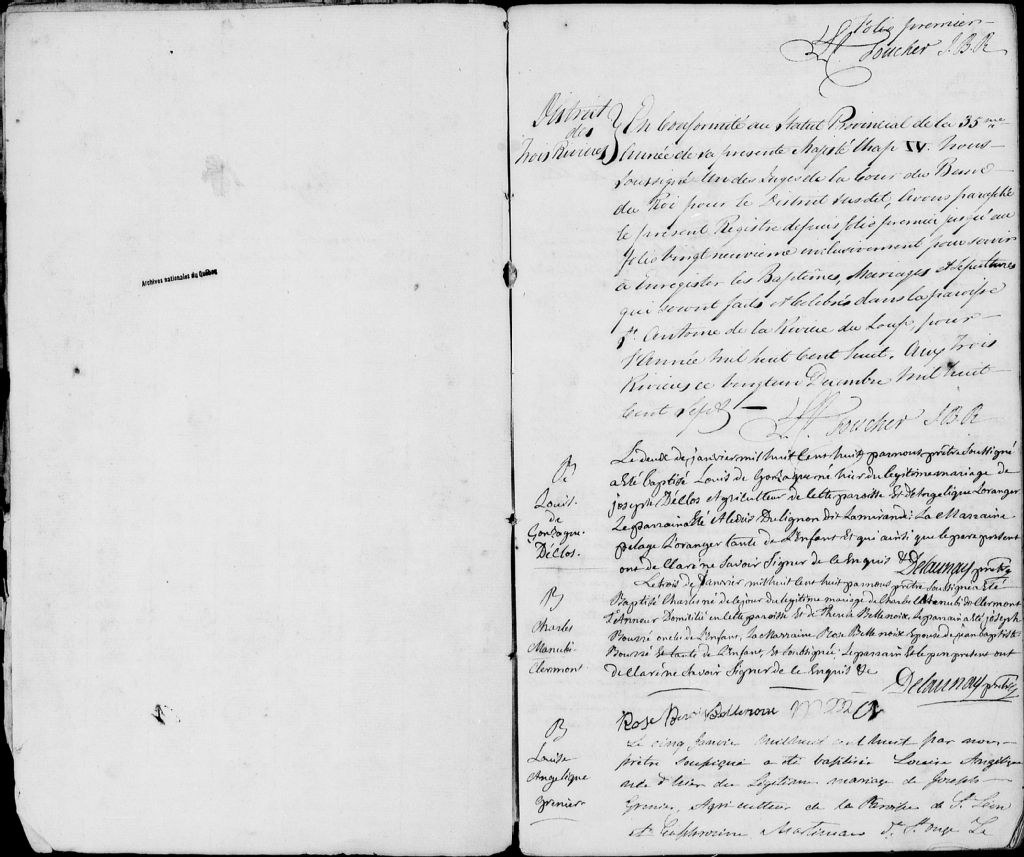 Archives nationales du Québec
folio premier
Ls. Foucher J.B.R
District
des
Trois Rivieres
En Conformité au Statut Provincial de la 35me
Année de sa presente Majesté Chap IV. Nous
Soussigné Un des Juges de la Cour du Banc
du Roi pour le District susdit, avons paraphé
le présent Registre depuis folio premier jusqu'au
folio vingt neuvieme inclusivement pour servir
à Enregister les Baptêmes, Mariages et Sepultures
qui seront faits et Celebrés dans la paroisse
St. Antoine de la Riviere du Loup pour
l'Année Mil huit Cent huit. Aux Trois
Rivieres ce vingt Decembre Mil huit
Cent Sept
Ls. Foucher J.B.R
B
Louis
de
Gonzague
Déclos.
Le deux de janvier mil huit Cent huit par nous prêtre Soussigné
a Eté Baptisé Louis de Gonzague né hier du legitime mariage de
joseph Déclos Agriculteur de cette paroisse Et D'Angelique Loranger
Le parrain a Eté Alexis Dulignon dit Lamirande; La Marraine
pelagie Loranger tante de L'Enfant Et qui ainsi que le pere present
ont declaré ne Savoir Signer de ce Enquis &
Delaunay prêtre
B
Charles
Manubi
Clermont
Le trois de Janvier mil huit Cent huit par nous prêtre Soussigné a Eté
Baptisé Charles né de ce jour du legitime mariage de Charles Manubi dit Clermont
Tanneur Domicilié en cette paroisse Et de Therese Bellenoix. Le parrain a Eté joseph
Bourré oncle de L'Enfant, La Marraine Rose Bellenoix Epouse de jean baptiste
Bourré Et tante de L'Enfant, Et Soussignée. Le parrain Et le pere present ont
declaré ne Savoir Signer de ce Enquis &c
Delaunay prêtre
Rose Bellenoix
B
Louise
Angelique
Grenier
Le cinq Janvier mil huit cent huit par nous
prêtre soussigné a été baptisée Louise Angelique
née d'hier du Légitime mariage de Joseph
Grenier, Agriculteur de la Paroisse de St. Leon
et Euphrosine Martineau dt. St. onge Le